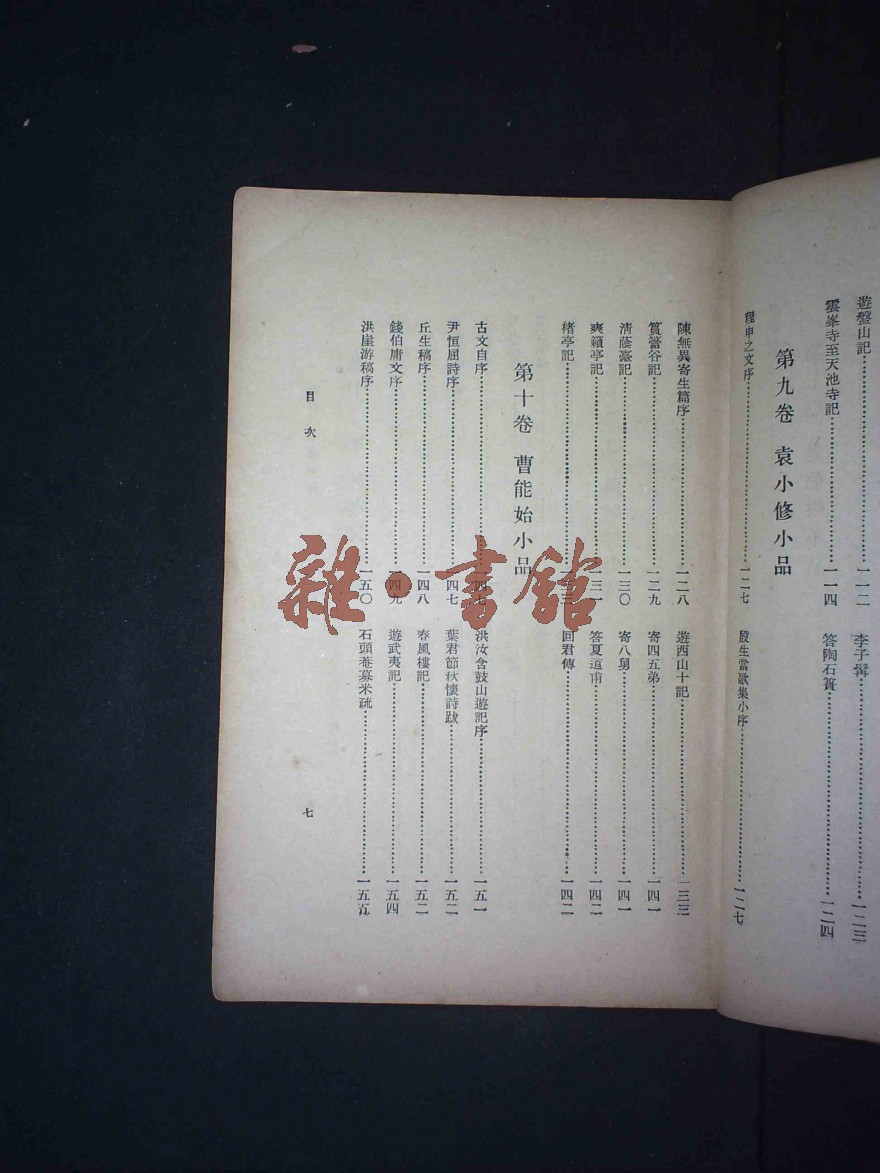 遊盤山記……一一二
李子髯……一二三
雲峯寺至天池寺記……一一四
答陶石簣……一二四
第九卷 袁小修小品
程申之文序……一二七
殷生當歌集小序……一二七
陳無異寄生篇序……一二八
遊西山十記……一三三
篔簹谷記……一二九
寄四五弟……一四一
清蔭臺記……一三〇
寄八舅……一四一
爽籟亭記……一三一
答夏道甫……一四二
楮亭記……一三三
回君傳……一四二
第十卷 曹能始小品
古文自序……一四七
洪汝含鼓山遊記序……一五一
尹恒屈詩序……一四七
葉君節秋懷詩跋……一五二
丘生稿序……一四八
春風樓記……一五二
錢伯庸文序……一四九
遊武夷記……一五四
洪崖游稿序……一五〇
石頭菴募米疏……一五五
目次
七
雜·書館